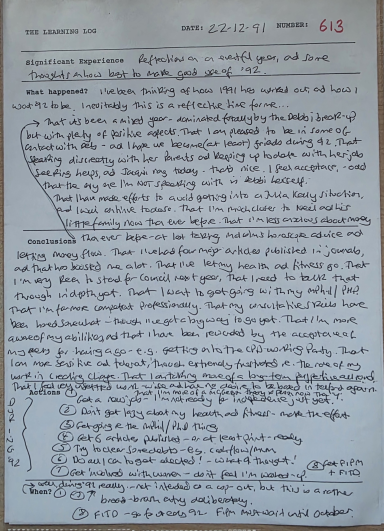 THE LEARNING LOG DATE: 22-12-91 NUMBER: 613
Significant Experience Reflections on an eventful year, and some
thoughts on how best to make good use of '92.
What happened? I've been thinking of how 1991 has worked out and how I
want 92 to be. Inevitably this is a reflective time for me...
That it's been a mixed year - dominated totally by the Debbi break-up
but with plenty of positive aspects. That I am pleased to be in some of
contact with Debs - and I hope we become (at least) friends during 92. That
speaking discreetly with her parents and keeping up to date with her job
seeking helps, and Jacqui rang today. That's nice. I feel acceptance, - odd
that the only one I'm NOT speaking with is Debbi herself.
That I have made efforts to avoid getting into a Julia Kelly situation,
That I'm much closer to and his
little family now than ever before. That I'm less anxious about money
Conclusions than ever before - at last taking Malcolm's horoscope advice and
letting money flow. That I've had four major articles published in journals,
and that has boosted me a lot. That I've let my health and fitness go. That
I'm very keen to stand for Council next year, that I need to talk that
through in depth yet. That I want to get going with my MPhil/PhD.
That I'm far more competent professionally. That my consultative skills have
been honed somewhat - though I've got a big way to go yet. That I'm more
aware of my abilities and that I have been rewarded by the acceptance of
my peers for having a go - e.g. getting onto the CPD working party. That I
am more positive and buoyant, though extremely frustrated re. the role of my
work in Creating Change. That I am taking more of a long-term perspective all round,
That I feel very unsettled work-wise and have no desire to be based in Telford again.
Actions
DURING 92
① Get a new job
② Don't get lazy about my health and fitness - make the effort
③ Get going on the MPhil/PhD thing
④ Get 6 articles published - or at least print-ready
⑤ Try to clear some debts - e.g.
⑥ Do all I can to get elected! - What a thought!
⑦ Get involved with women - don't feel I'm washed-up!
⑧ Get FIPM + FITD
When? ① - ⑦ during 92 really - not intended as a cop-out, but this is a rather
broad-brush entry deliberately.
⑧ FITD - go for early 92. FIPM must wait until October.